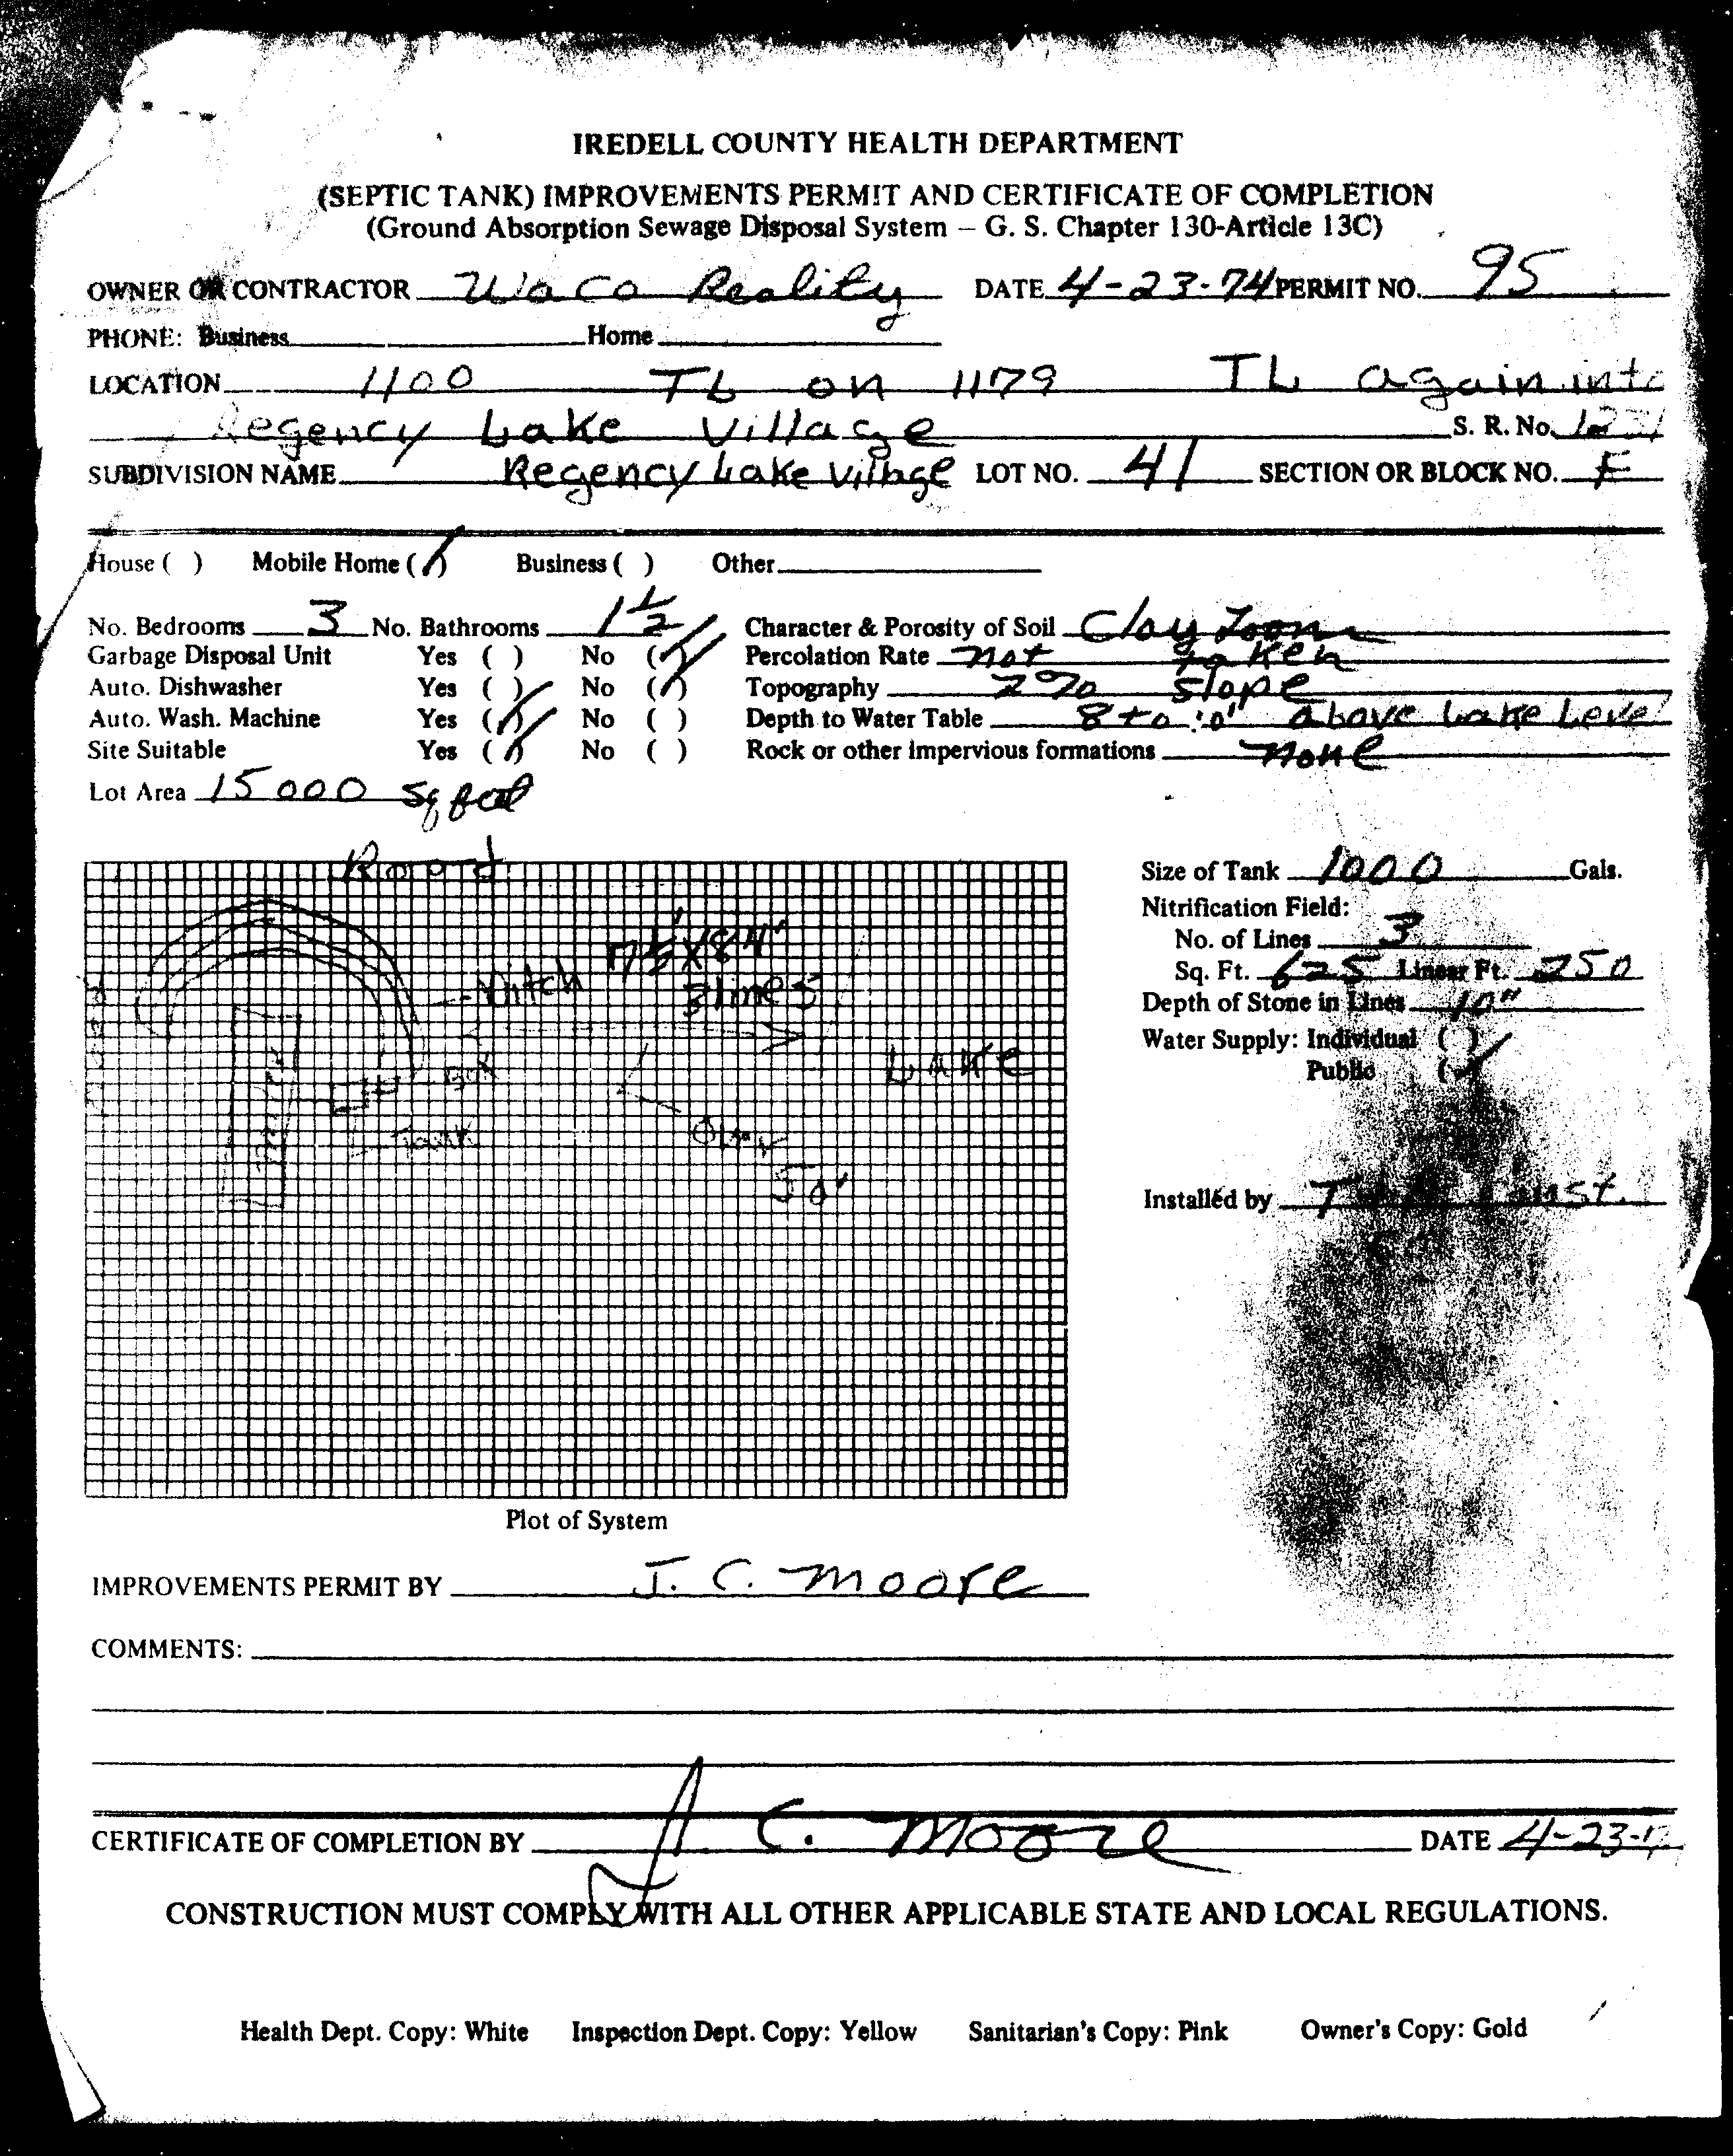 IREDELL COUNTY HEALTH DEPARTMENT
(SEPTIC TANK) IMPROVEMENTS PERMIT AND CERTIFICATE OF COMPLETION
(Ground Absorption Sewage Disposal System – G. S. Chapter 130-Article 13C)
OWNER OR CONTRACTOR Waco Reality DATE 4-23-74 PERMIT NO. 95
PHONE: Business Home
LOCATION 1100 TL on 1179 TL again into
Regency Lake Village S. R. No.
SUBDIVISION NAME Regency Lake Village LOT NO. 41 SECTION OR BLOCK NO. F
House ( ) Mobile Home (✓) Business ( ) Other
No. Bedrooms 3 No. Bathrooms 1 1/2 Character & Porosity of Soil Clay Loom
Garbage Disposal Unit Yes ( ) No (✓) Percolation Rate not taken
Auto. Dishwasher Yes ( ) No (✓) Topography 2% slope
Auto. Wash. Machine Yes (✓) No ( ) Depth to Water Table 8 to 10' above Lake Level
Site Suitable Yes (✓) No ( ) Rock or other impervious formations none
Lot Area 15000 sq feet
Road
Size of Tank 1000 Gals.
Nitrification Field:
No. of Lines 3
Sq. Ft. 625 Linear Ft. 250
Depth of Stone in Lines 10"
Water Supply: Individual ( )
Public (✓)
Ditch
3 lines
Lake
Box
Tank
50'
Installed by Const.
Plot of System
IMPROVEMENTS PERMIT BY J. C. Moore
COMMENTS:
CERTIFICATE OF COMPLETION BY J C. Moore DATE 4-23-7
CONSTRUCTION MUST COMPLY WITH ALL OTHER APPLICABLE STATE AND LOCAL REGULATIONS.
Health Dept. Copy: White Inspection Dept. Copy: Yellow Sanitarian's Copy: Pink Owner's Copy: Gold